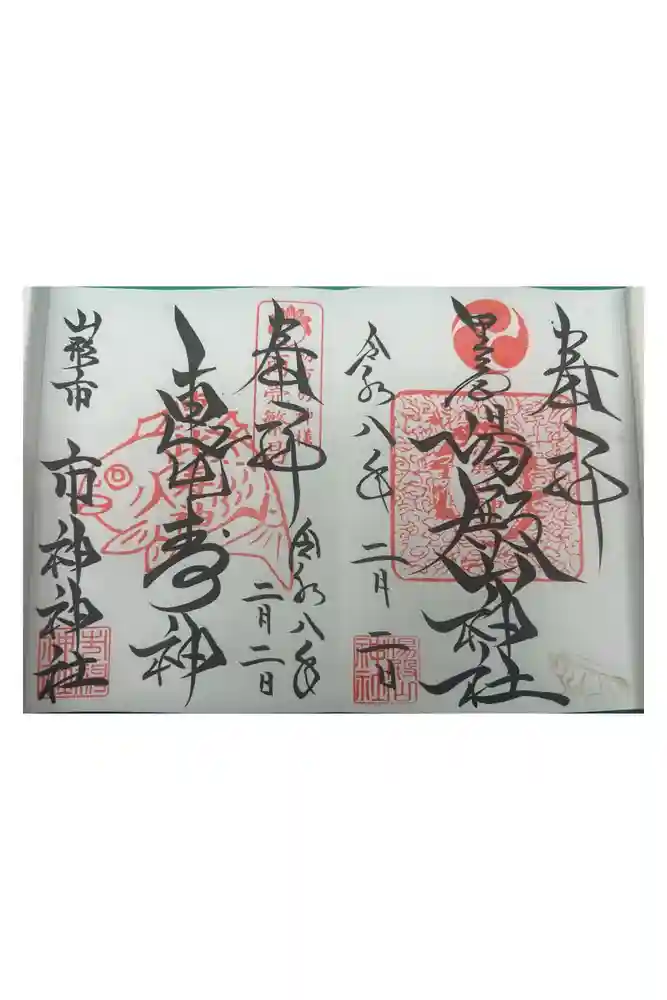 奉拝
里之宮
湯殿山神社
令和八年 二月 二日
湯殿山
神社
奉拝
令和八年
二月二日
恵比寿神
山形市
市神神社